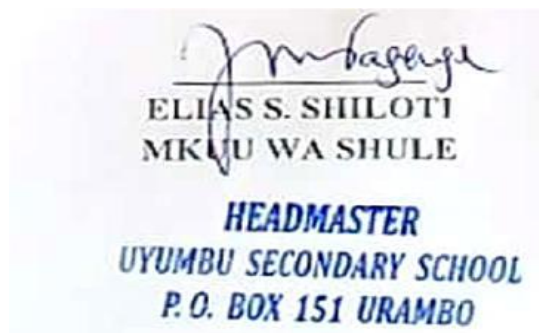 ELIAS S. SHILOTI
MKUU WA SHULE
HEADMASTER
UYUMBU SECONDARY SCHOOL
P. O. BOX 151 URAMBO